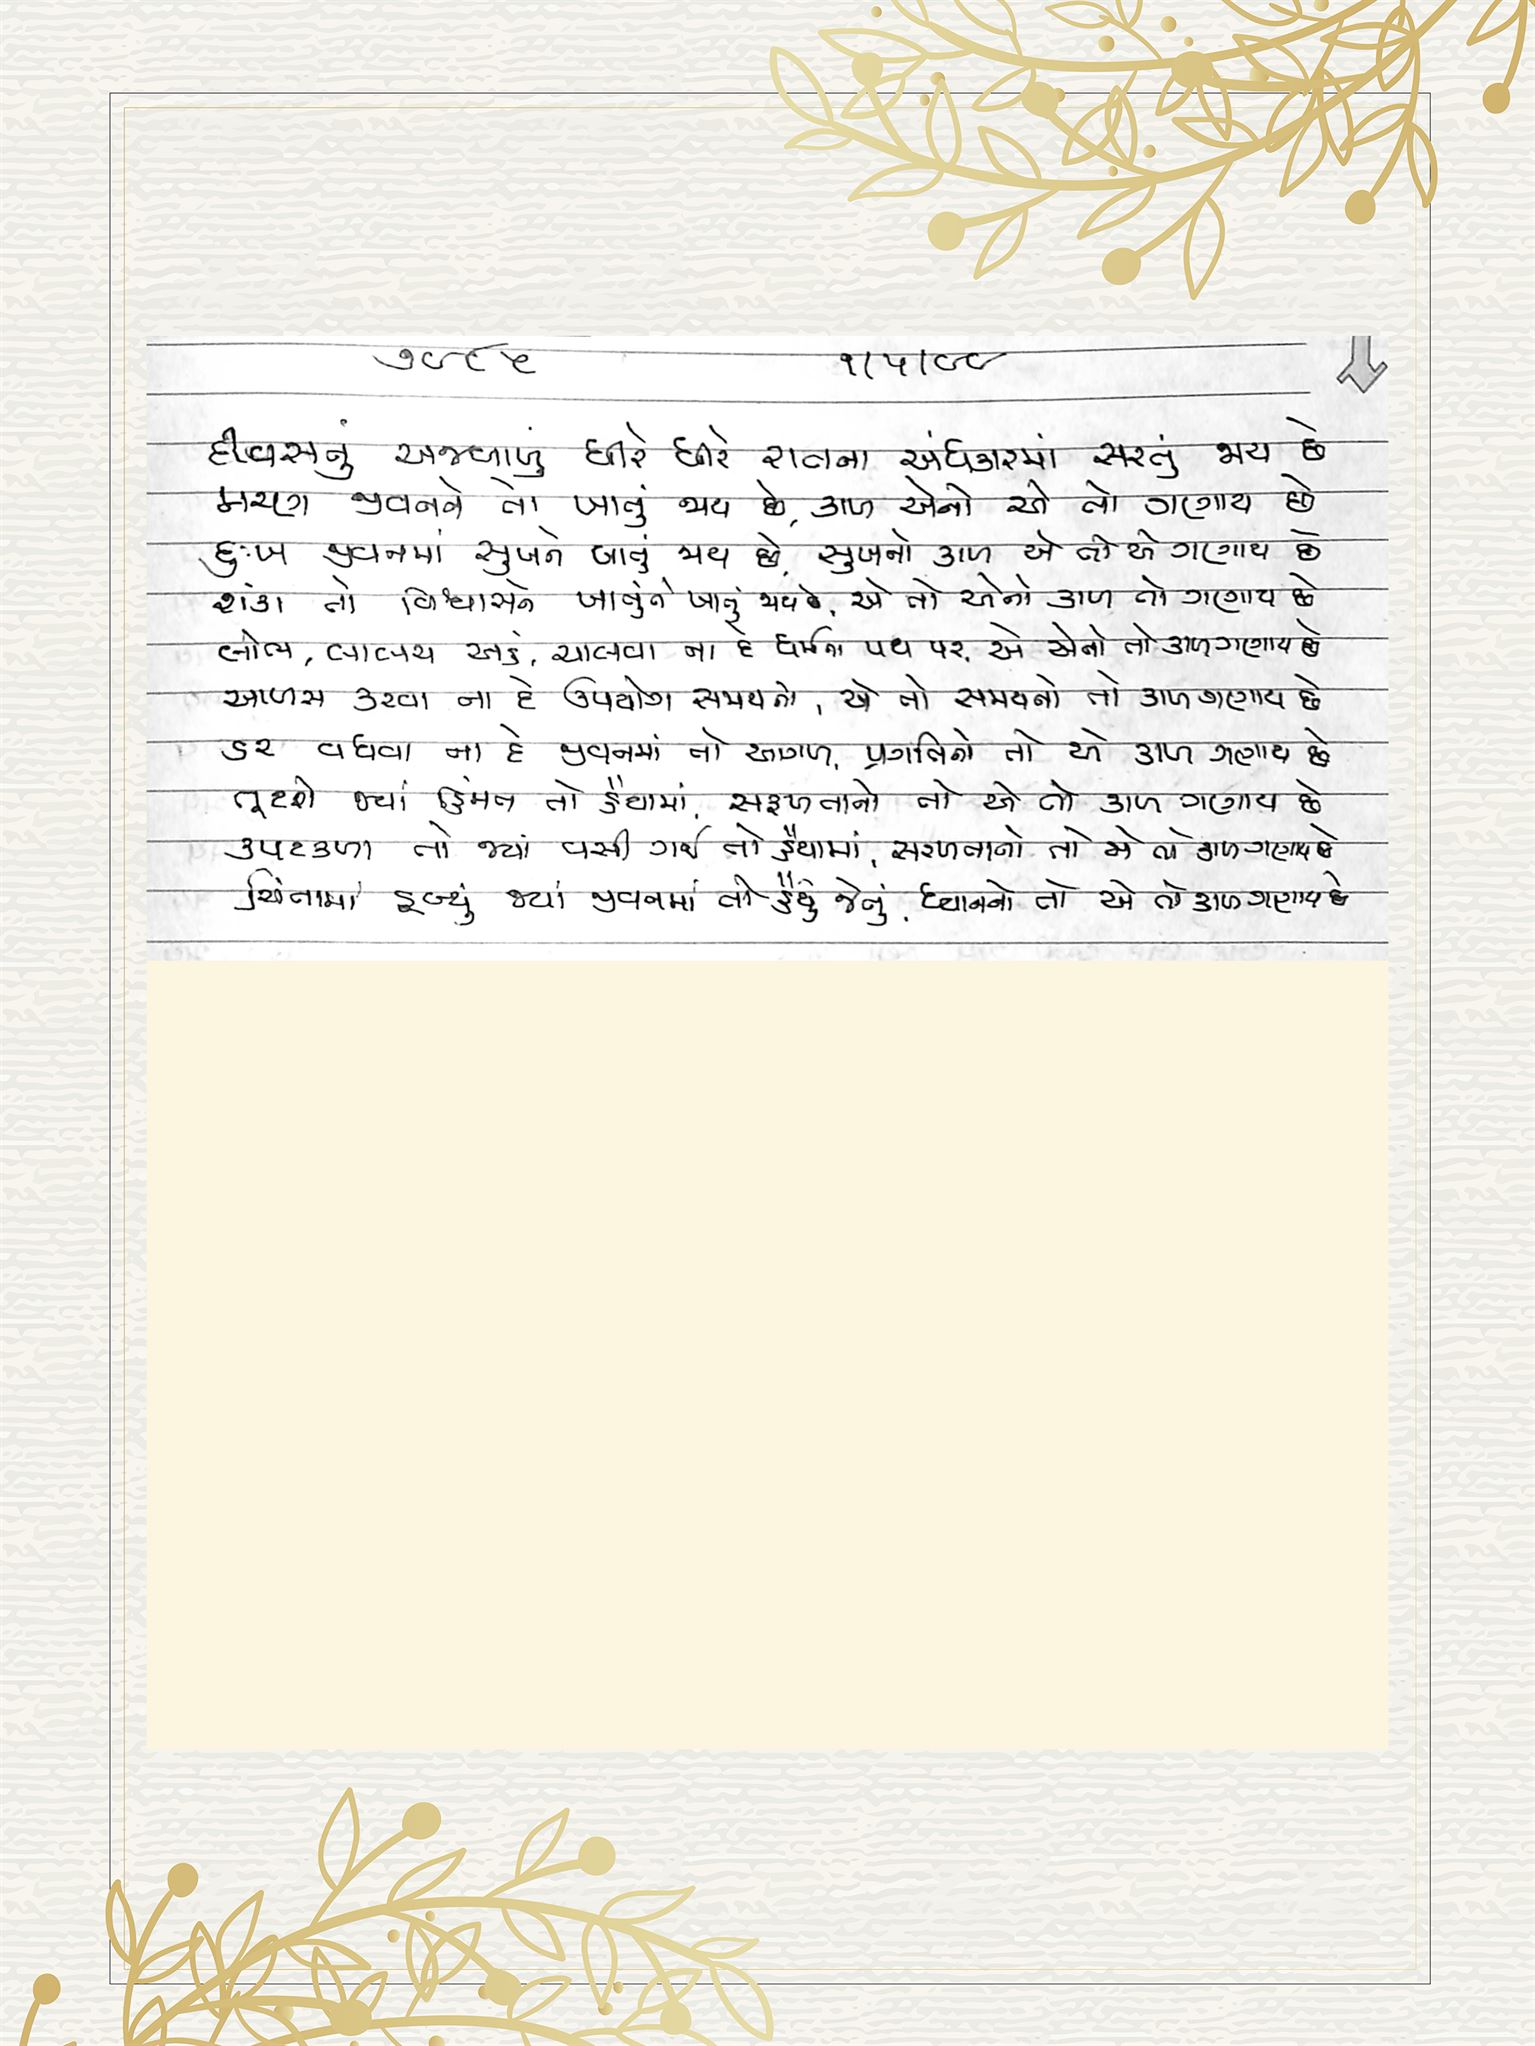 ૭૯૮૫ ૧/૫/૯૯
દીવસનું અજવાળું ધીરે ધીરે રાતના અંધકારમાં સરતું જાય છે
મરણ જીવનને તો ખાતું જાય છે, કાળ એનો એ તો ગણાય છે
દુઃખ જીવનમાં સુખને ખાતું જાય છે, સુખનો કાળ એ તો એ ગણાય છે
શંકા તો વિશ્વાસને ખાતુંને ખાતું જાય છે, એ તો એનો કાળ તો ગણાય છે
લોભ, લાલચ અહં, ચાલવા ના દે ધર્મના પથ પર, એ એનો તો કાળ ગણાય છે
આળસ કરવા ના દે ઉપયોગ સમયનો, એ તો સમયનો તો કાળ ગણાય છે
ડર વધવા ના દે જીવનમાં તો આગળ, પ્રગતિનો તો એ કાળ ગણાય છે
તૂટશે જ્યાં હિંમત તો હૈયામાં, સફળતાનો તો એ તો કાળ ગણાય છે
કપટકળા તો જ્યાં વસી ગઈ તો હૈયામાં, સરળતાનો તો એ તો કાળ ગણાય છે
ચિંતામાં ડૂબ્યું જ્યાં જીવનમાં તો હૈયું જેનું, ધ્યાનનો તો એ તો કાળ ગણાય છે